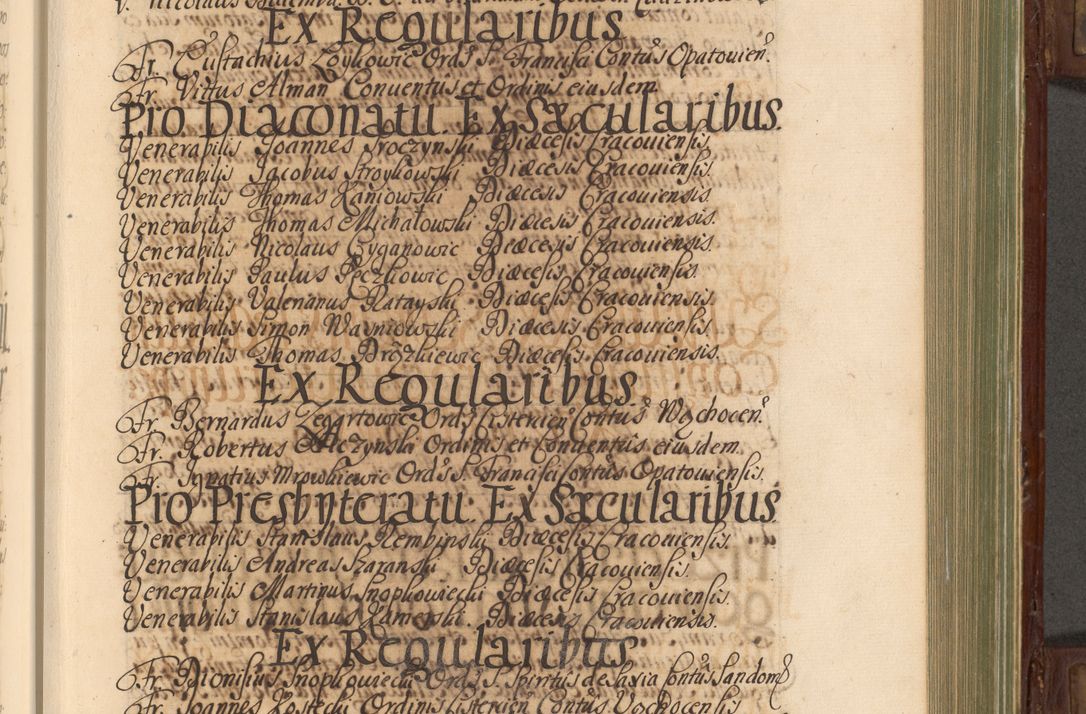 Ex Regularibus
Fr. Eustachius Zoykowic Ord: S. Francisci Contus Opatouien.
Fr. Vittus Alman Conuentus et Ordinis eiusdem
Pro Diaconatu. Ex Sæcularibus.
Venerabilis Joannes Sroczynski Diæcesis Cracouiensis.
Venerabilis Jacobus Stroykowski Diæcesis Cracouiensis.
Venerabilis Thomas Kaniowski Diæcesis Cracouiensis.
Venerabilis Thomas Michałowski Diæcesis Cracouiensis.
Venerabilis Nicolaus Cyganowic Diæcesis Cracouiensis.
Venerabilis Paulus Peczkowic Diæcesis Cracouiensis.
Venerabilis Valerianus Ratayski Diæcesis Cracouiensis.
Venerabilis Simon Wasniowski Diæcesis Cracouiensis.
Venerabilis Thomas Drozkiewic Diæcesis Cracouiensis.
Ex Regularibus
Fr. Bernardus Zegartowic Ord: Cistercien Contus Wochocen.
Fr. Robertus Ordinis et Conuentus eiusdem
Fr. Ignatius Mrowkiewic Ord: S. Francisci Contus Opatouiensis.
Pro Presbyteratu. Ex Sæcularibus
Venerabilis Stanislaus Rembinski Diæcesis Cracouiensis.
Venerabilis Andreas Szaranski Diæcesis Cracouiensis.
Venerabilis Martinus Snopkowiecki Diæcesis Cracouiensis.
Venerabilis Stanislaus Diæcesis Cracouiensis.
Ex Regularibus
Fr. Dionisius Snopkowiecki Ord: S. Spiritus de Saxia Contus Sandom
Fr. Joannes Kostecki Ordinis Cistercien Contus Vochocensis